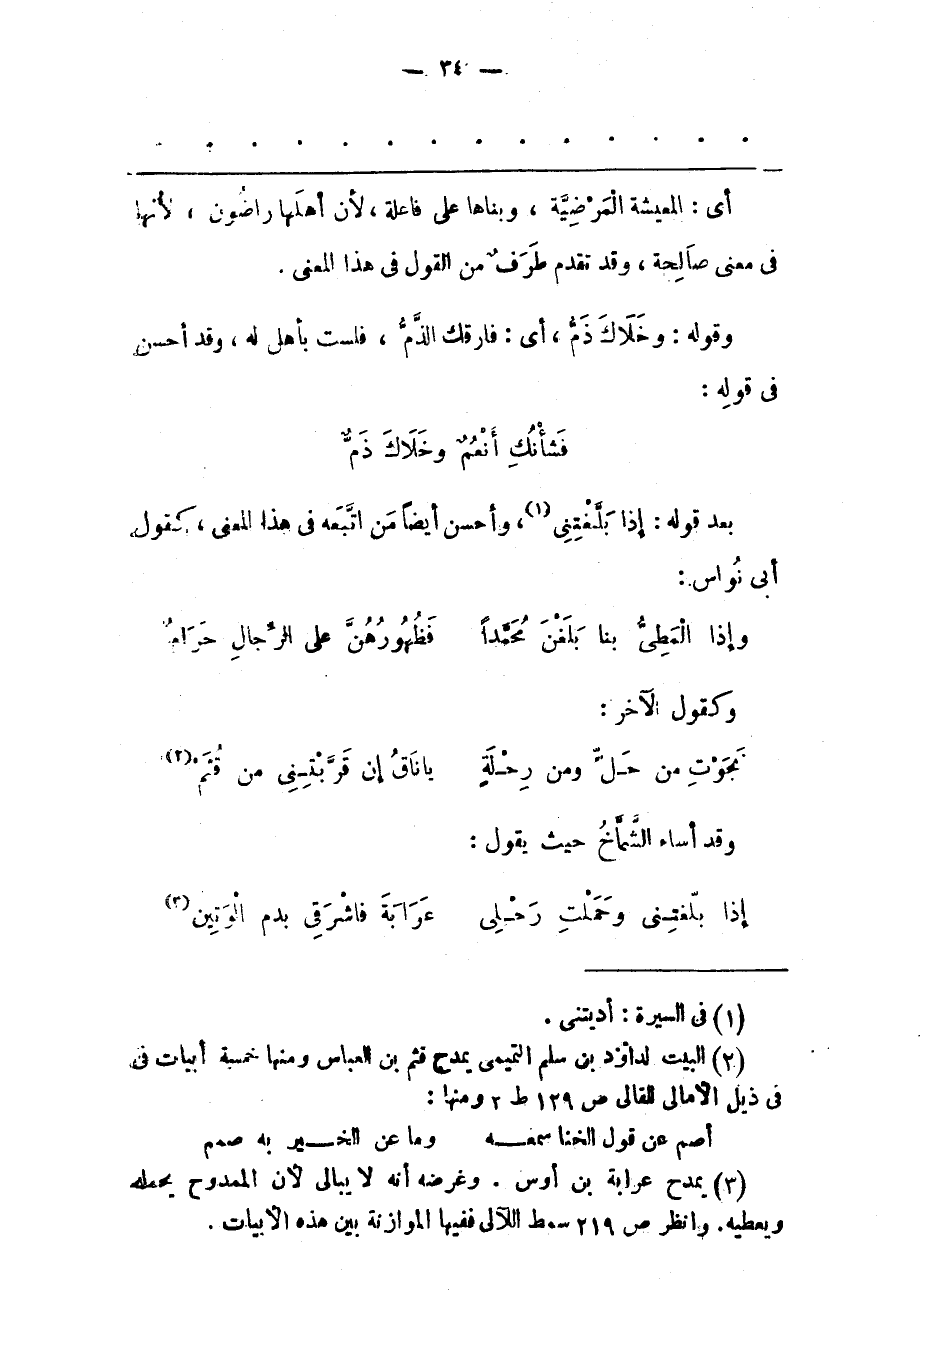 — ٣٤ —
أى : المعيشة الْمَرْضِيَّة ، وبناها على فاعلة ، لأن أهلَها راضُون ، لأنها
فى معنى صَالِحة ، وقد تقدم طَرَفٌ من القول فى هذا المعنى .
وقوله : وخَلَاكَ ذَمٌّ ، أى : فارقك الذَّمُّ ، فلست بأهل له ، وقد أحسن
فى قولِه :
فَشأْنُكِ أَنْعُمٌ وخَلَاكَ ذَمٌّ
بعد قوله : إذا بَلَّغْتِنِى (١) ، وأحسن أيضاً مَن اتَّبَعه فى هذا المعنى ، كقول
أبى نُواس :
وإذا الْمَطِىُّ بنا بَلَغْنَ مُحَمَّداً فَظُهُورُهُنَّ على الرِّجالِ حَرَامُ
وكقول الآخر :
نَجَوْتِ من حَـلٍّ ومن رِحْـلَةٍ ياناَقُ إن قَرَّبْتِـنِى من قُثَمْ (٢)
وقد أساء الشَّمَّاخُ حيث يقول :
إذا بلّغتِـنى وحَمَلْتِ رَحْـلِى عَرَابَةَ فاشْرَقِى بدم الْوَتِين (٣)
(١) فى السيرة : أديتنى .
(٢) البيت لداوُد بن سلم التميمى يمدح قثم بن العباس ومنها خمسة أبيات فى
فى ذيل الأمالى للقالى ص ١٢٩ ط ٢ ومنها :
أصم عن قول الخنا سمعـــه وما عن الخـــير به صمم
(٣) يمدح عرابة بن أوس . وغرضه أنه لا يبالى لأن الممدوح يحمله
ويعطيه. وانظر ص ٢١٩ سمط اللآلى ففيها الموازنة بين هذه الأبيات .